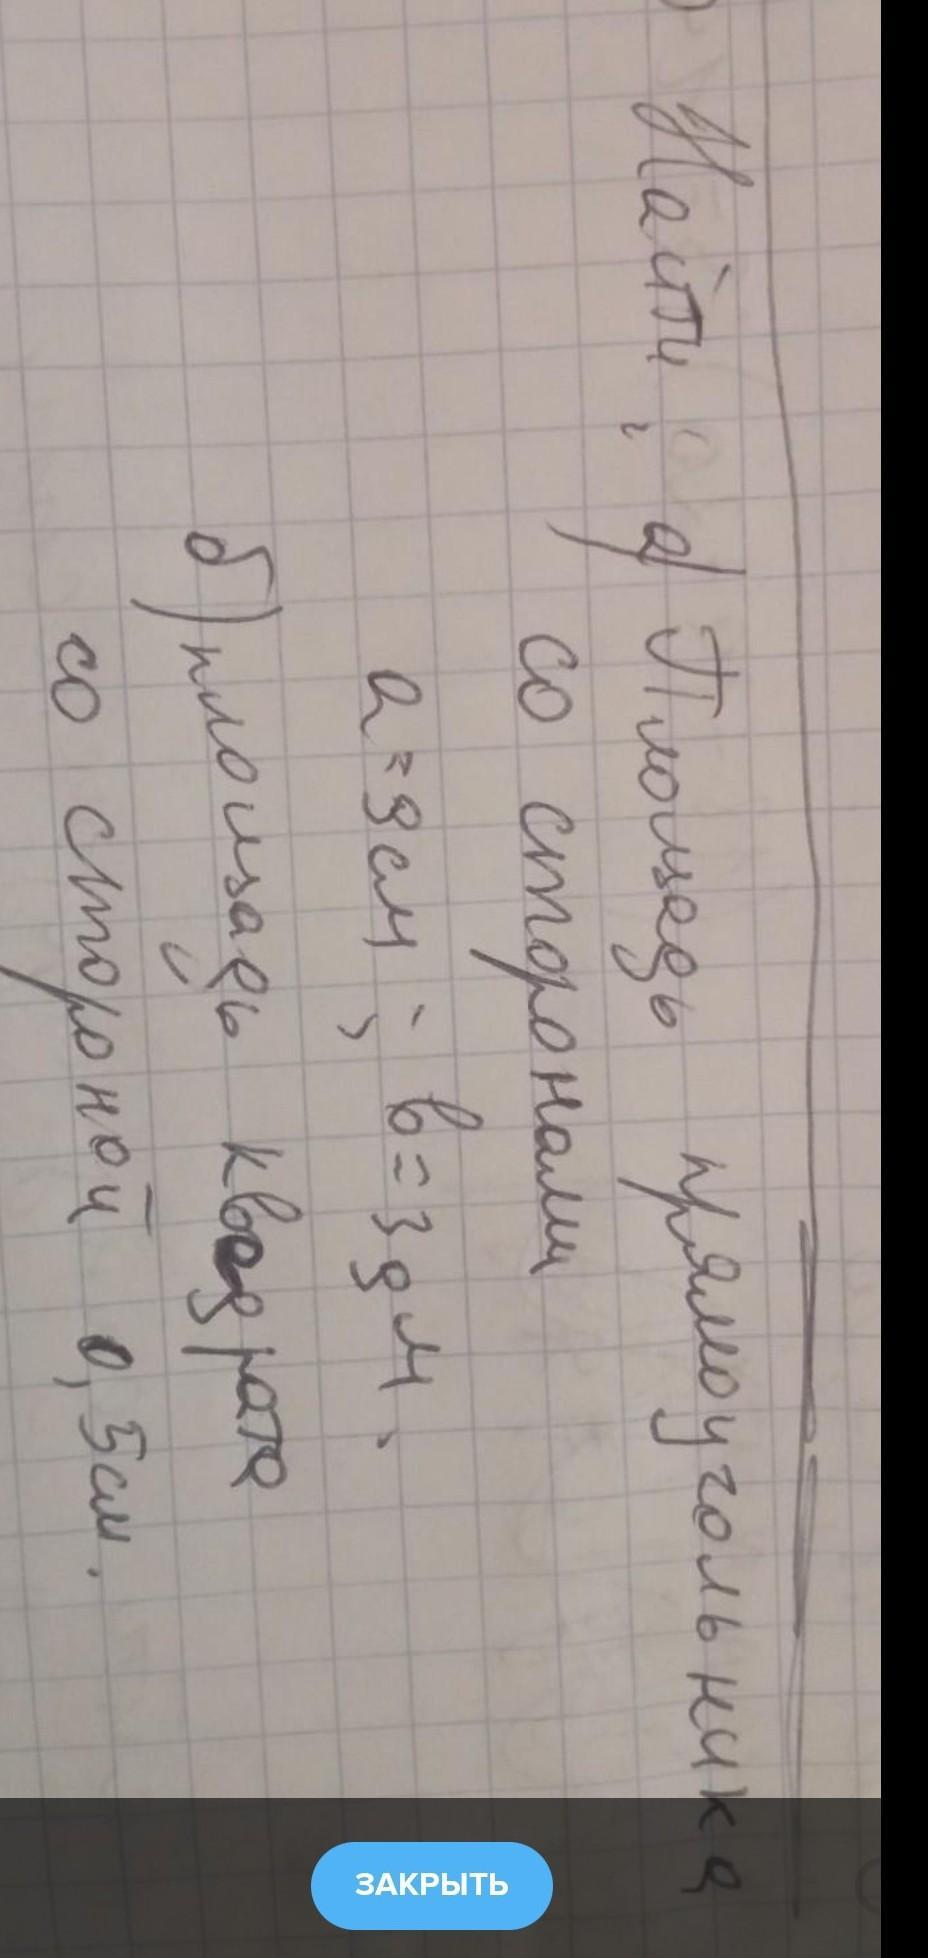 Найти, а) Площадь прямоугольника
со сторонами
а=9см; в=3дм.
б) площадь квадрата
со стороной 0,5см.
ЗАКРЫТЬ